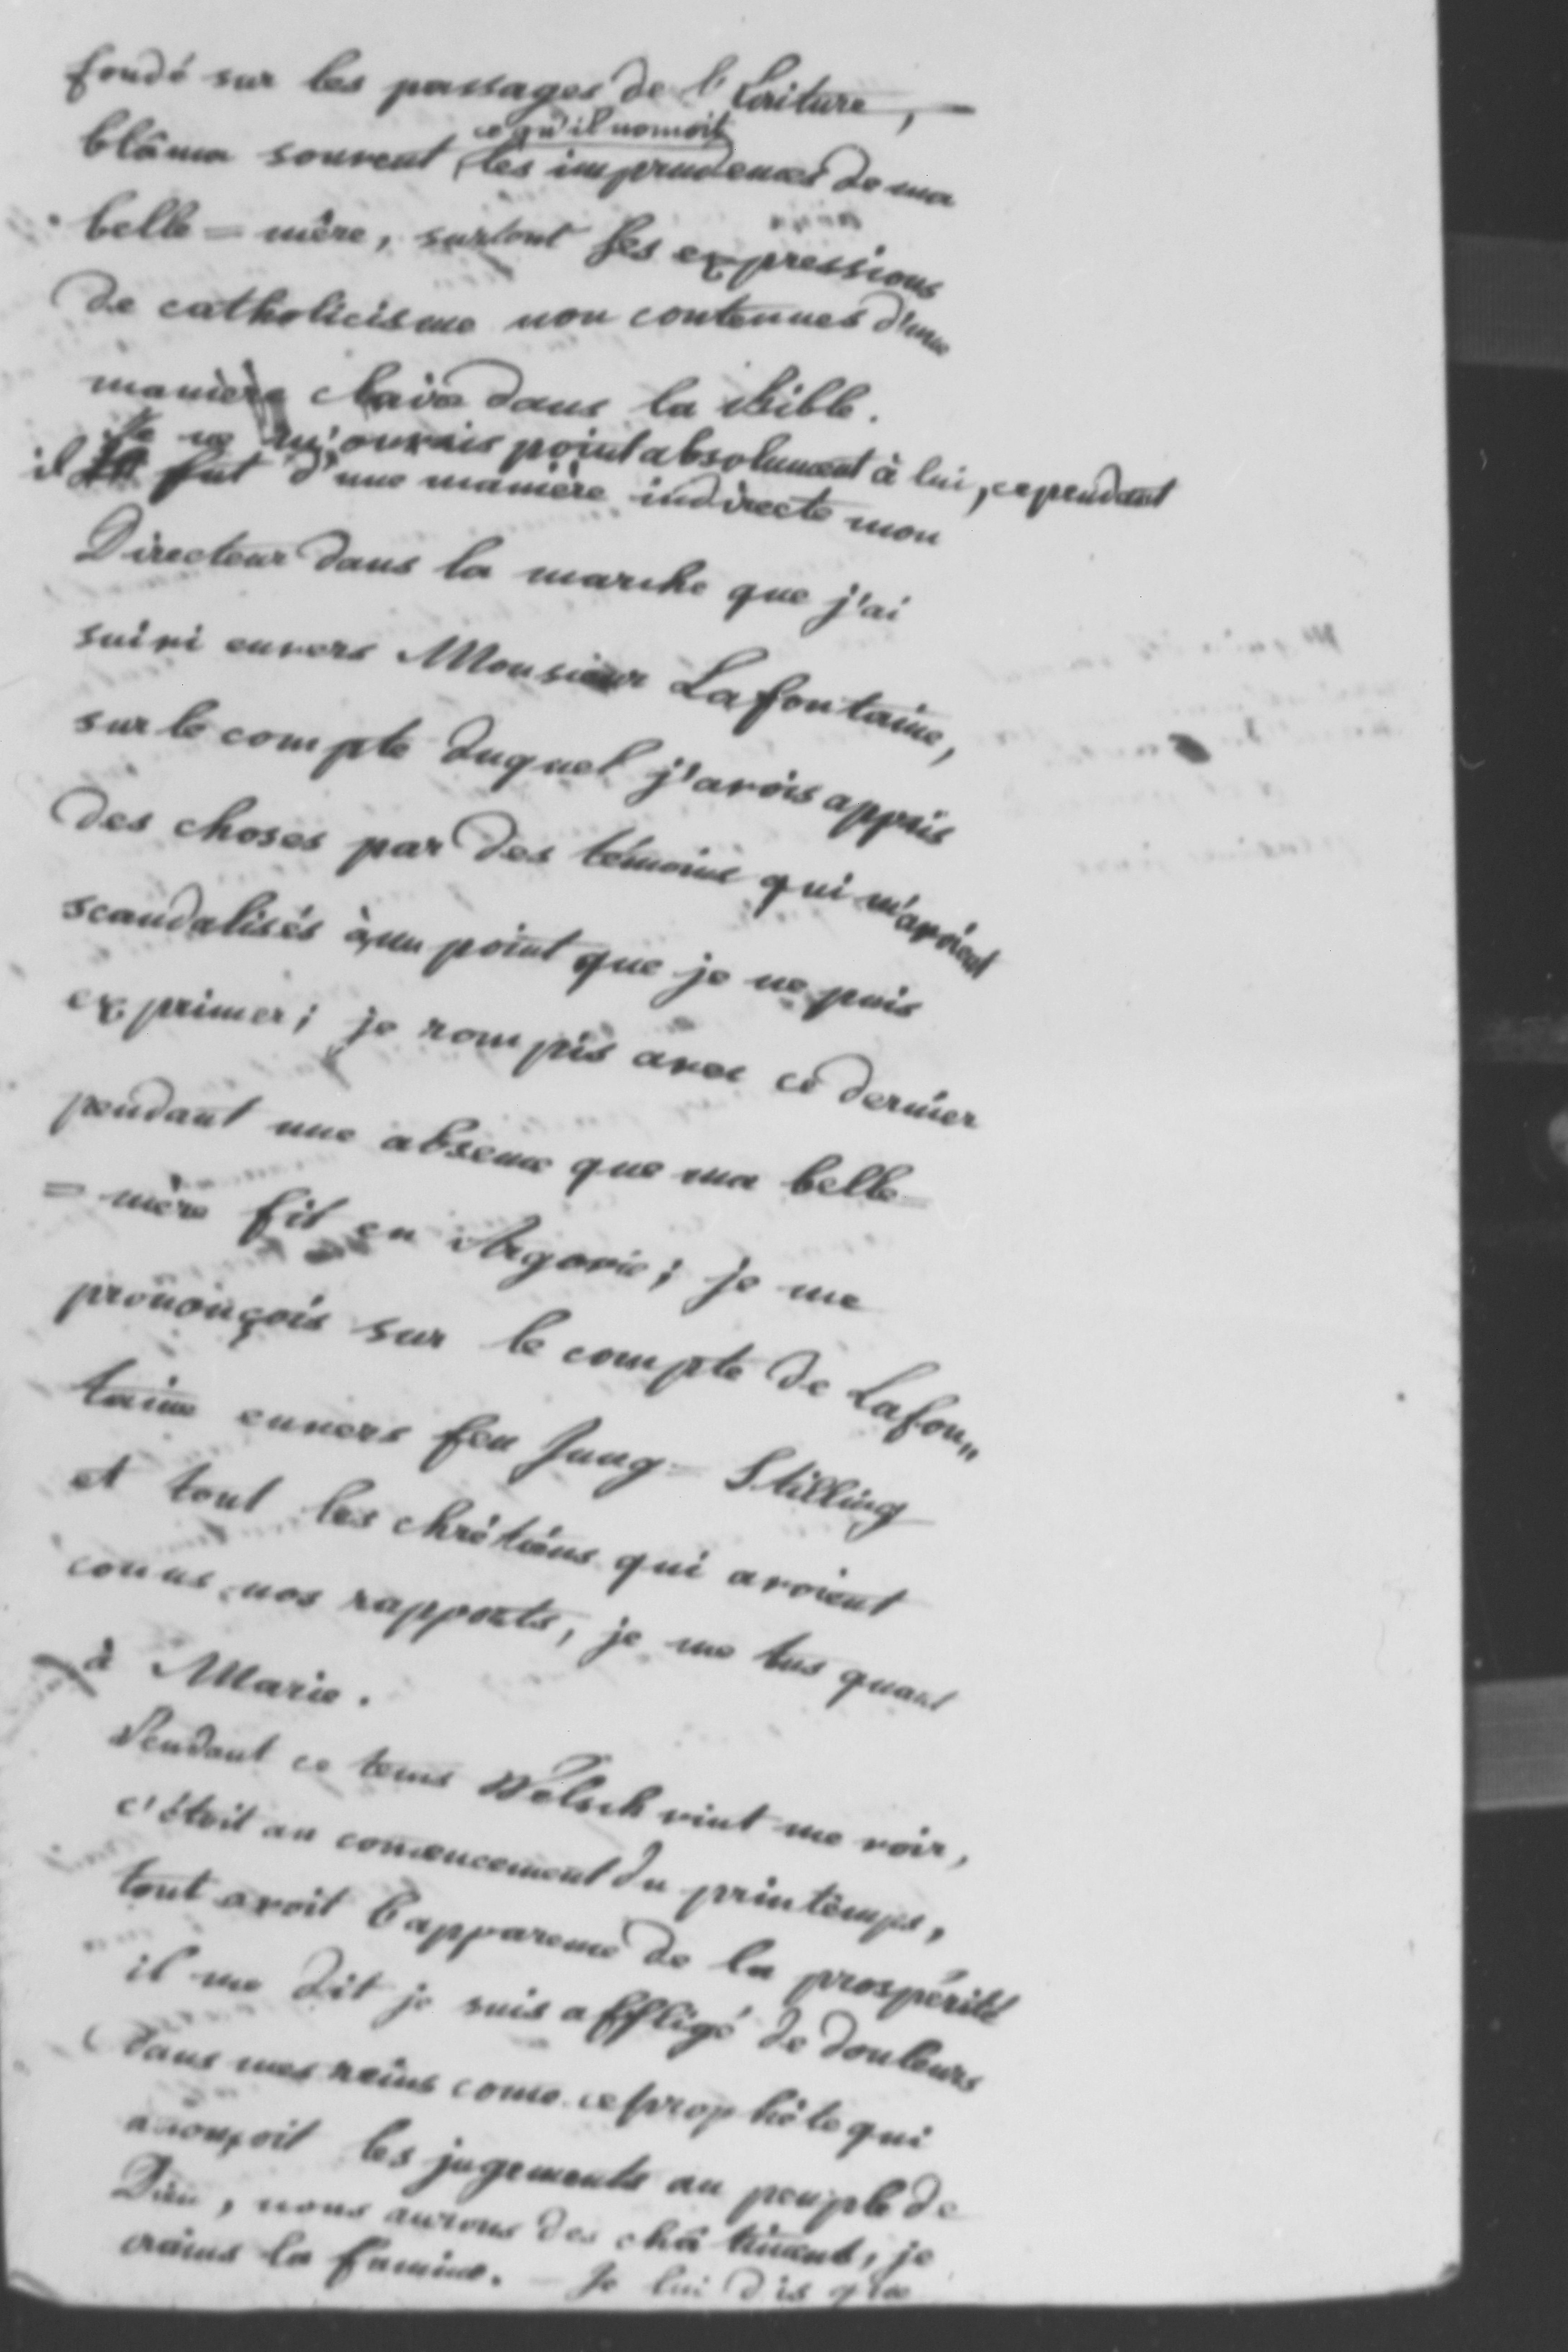 fondé sur les passages de l'Ecriture, —
ce qu'il nomoit
blâma souvent les imprudences de ma
belle = mère, surtout ses expressions
de catholicisme non contenues d'une
manière claire dans la Bible.
Je ne m'ouvrais point absolument à lui, cependant
il fut d'une manière indirecte mon
Directeur dans la marche que j'ai
suivi envers Monsieur Lafontaine,
sur le compte duquel j'avois appris
des choses par des témoins qui m'avoient
scandalisés à un point que je ne puis
exprimer; je rompis avec ce dernier
pendant une absence que ma belle =
= mère fit en Argovie; je me
prononçois sur le compte de Lafon„
taine envers feu Jung = Stilling
et tout les chrétiens qui avoient
conus nos rapports, je me tus quant
à Marie.
Pendant ce tems Welsch vint me voir,
c'étoit au comencement du printêmps,
tout avoit l'apparence de la prospérité
il me dit je suis affligé de douleurs
dans mes reins come ce prophête qui
anonçoit les jugements au peuple de
Dieu, nous aurons des châtiment, je
crains la famine. — Je lui dis que